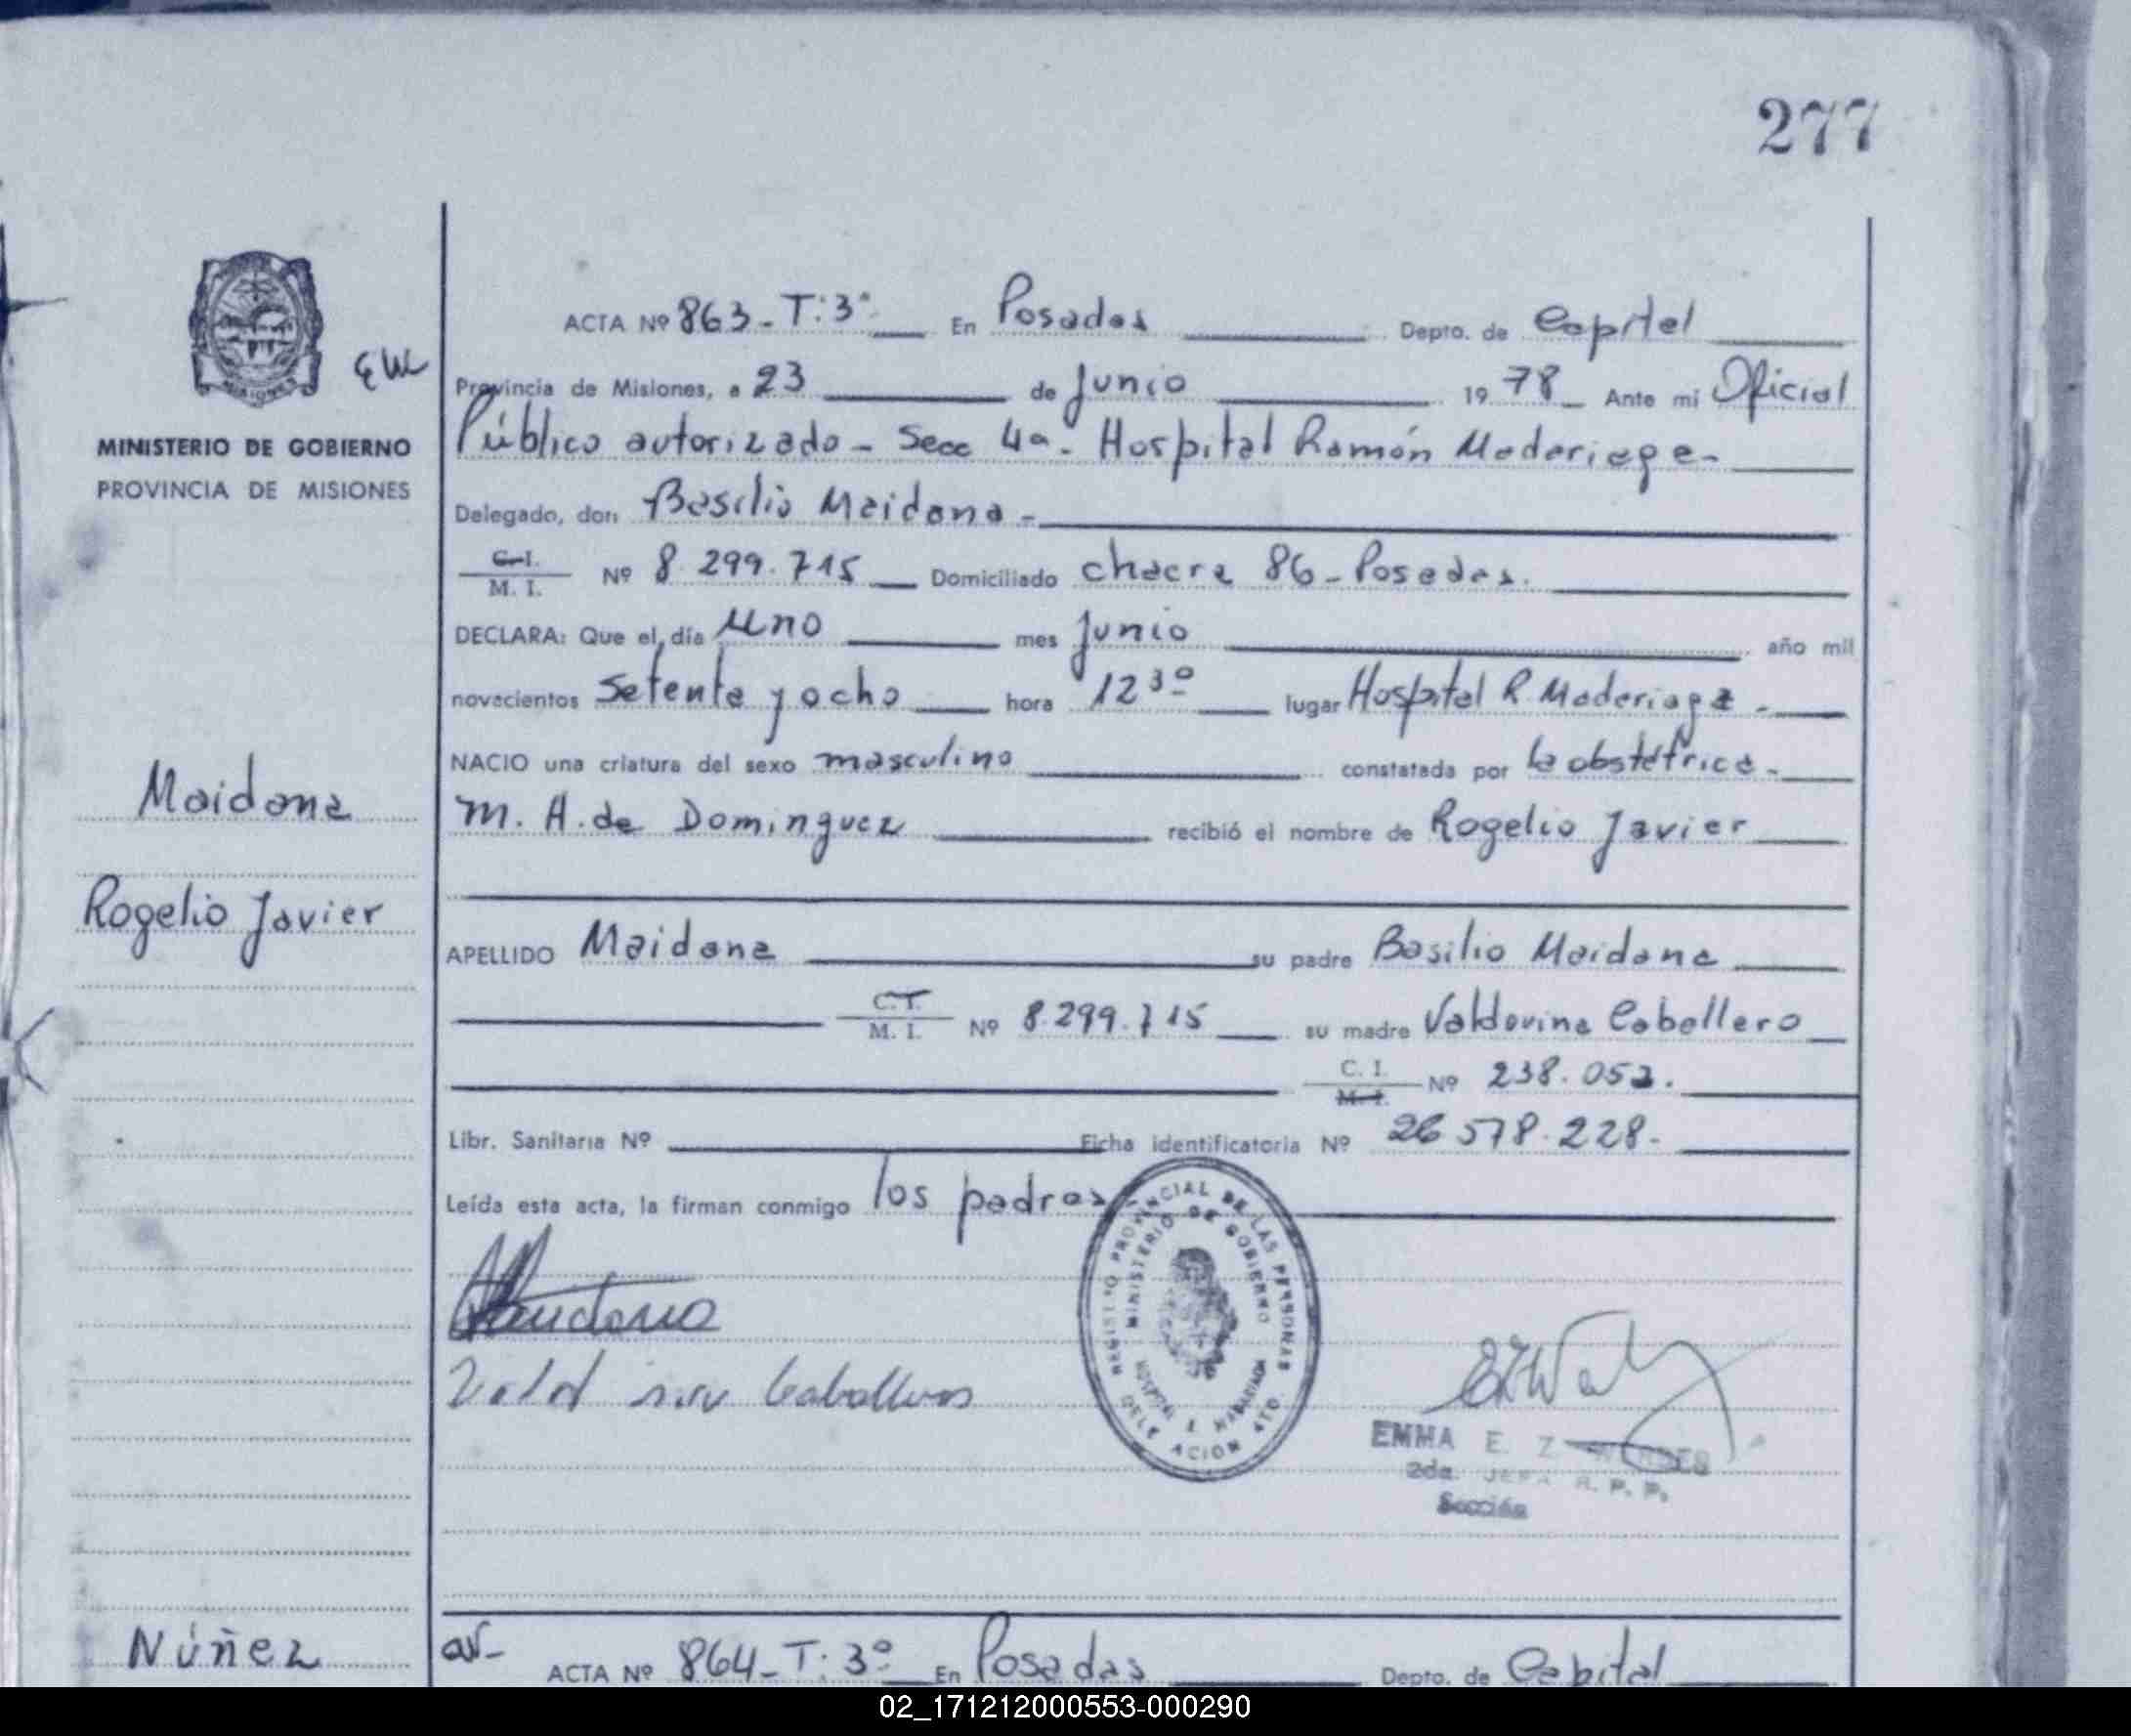 277
EW
MINISTERIO DE GOBIERNO
PROVINCIA DE MISIONES
ACTA Nº 863_ T: 3º En Posadas Depto. de Capital
Provincia de Misiones, a 23 de Junio 19 78 Ante mi Oficial
Público autorizado - Secc 4ª - Hospital Ramón Madariaga -
Delegado, don Basilio Maidana -
C. I. / M. I. Nº 8.299.715 Domiciliado chacra 86 - Posadas.
DECLARA: Que el día Uno mes Junio año mil
novecientos Setenta y ocho hora 12 30 lugar Hospital R. Madariaga -
NACIO una criatura del sexo masculino constatada por la obstétrica -
M. H. de Dominguez recibió el nombre de Rogelio Javier
Maidana
Rogelio Javier
APELLIDO Maidana su padre Basilio Maidana
C. I. / M. I. Nº 8.299.715 su madre Valdovina Caballero
C. I. / M. I. Nº 238.052.
Libr. Sanitaria Nº Ficha identificatoria Nº 26 578.228.
Leída esta acta, la firman conmigo los padres
REGISTRO PROVINCIAL DE LAS PERSONAS
MINISTERIO DE GOBIERNO
HOSPITAL R. MADARIAGA
DELEGACION 4TO.
Maidana
Caballero
EMMA E. Z.
2da. JEFA R. P. P.
Sección
Núñez
ACTA Nº 864_ T: 3º En Posadas Depto. de Capital
02_171212000553-000290